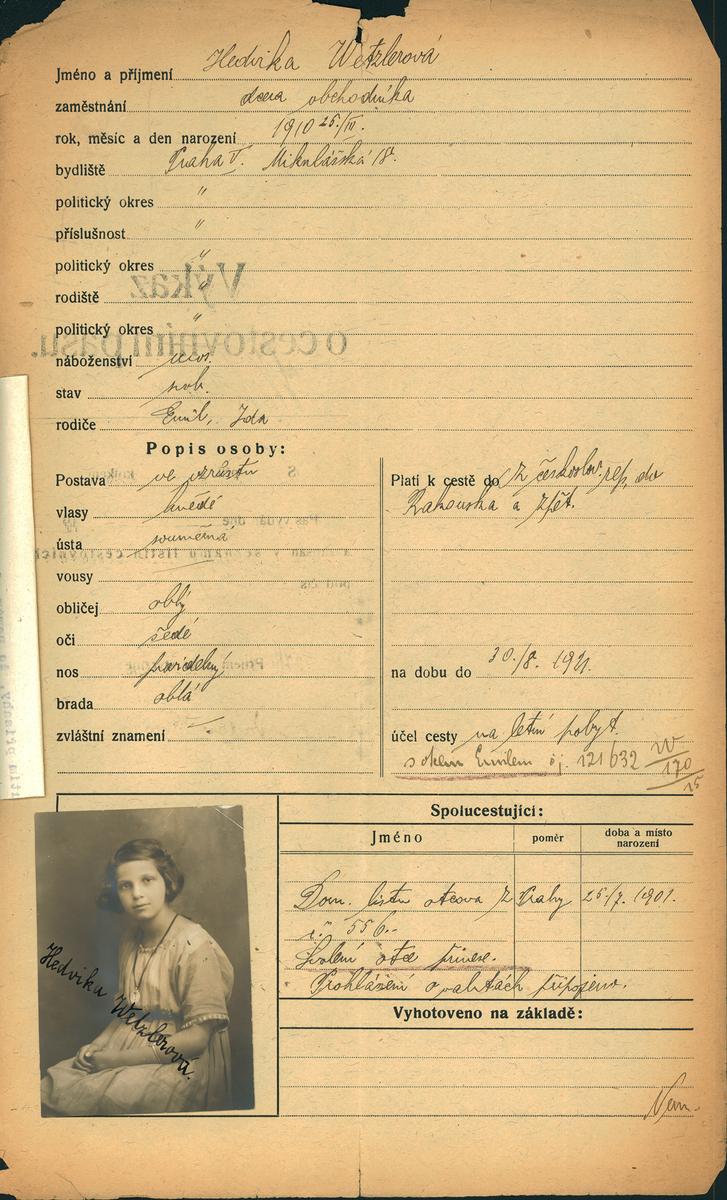 Jméno a příjmení Hedvika Wetzlerová
zaměstnání dcera obchodníka
rok, měsíc a den narození 1910 25/IV.
bydliště Praha V. Mikulášská 18.
politický okres "
příslušnost "
politický okres "
rodiště "
politický okres "
náboženství mos.
stav svob.
rodiče Emil, Ida
Popis osoby:
Postava ve vzrůstu
vlasy hnědé
ústa souměrná
vousy
obličej oblý
oči šedé
nos pravidelný
brada oblá
zvláštní znamení —
Platí k cestě do z českoslov. rep. do
Rakouska a zpět.
na dobu do 30./8. 1921.
účel cesty na letní pobyt.
s otcem Emilem čj. 121632 W/170
15
Výkaz
o cestovním pasu.
Hedvika Wetzlerová.
Spolucestující:
Jméno poměr doba a místo narození
Dom. listu otcova z Prahy 25/7. 1901.
č. 556.-
Svolení otce přinese.
Prohlášení o valutách připojeno.
Vyhotoveno na základě: